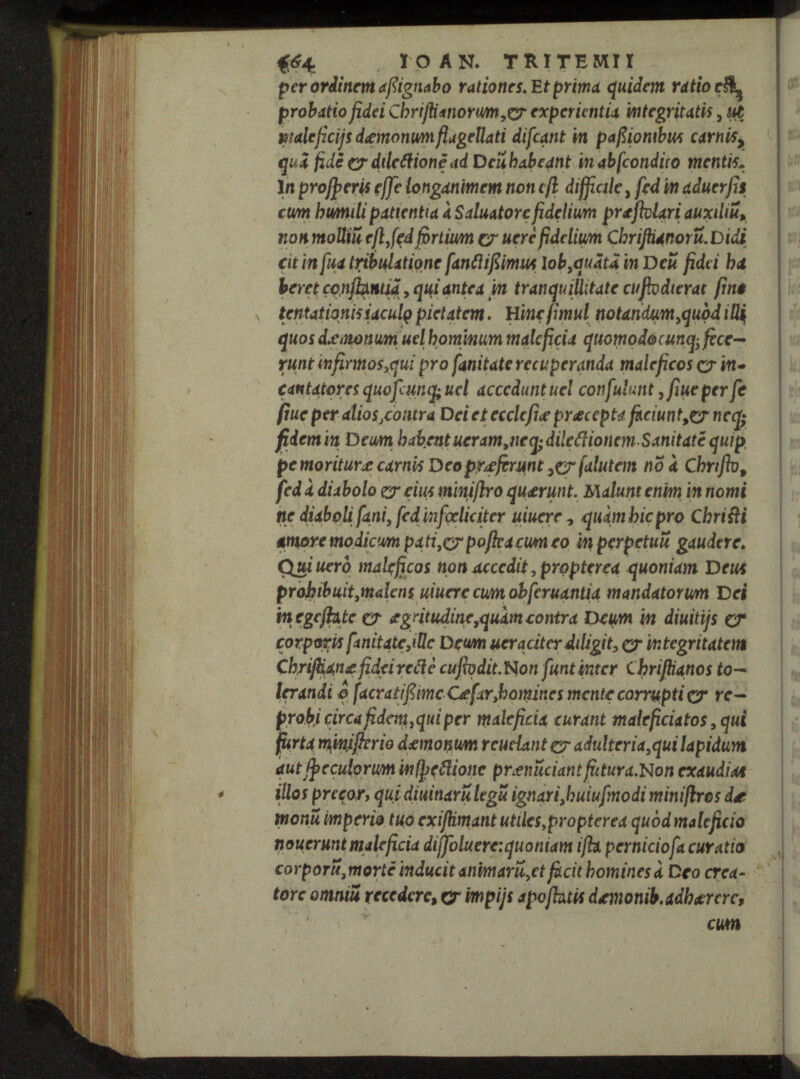 164 IOAN. TRITEMII
per ordinem aßignabo rationes. Et prima quidem ratio est,
probatio fidei Christianorum, & experientia integritatis, ut
maleficijs dæmonum flagellati discant in paßionibus carnis,
quã fidẽ & dilectionẽ ad Deũ habeant in abscondito mentis.
In prosperis esse longanimem non est difficile, sed in aduersis
cum humili patientia à Saluatore fidelium præstolari auxiliũ,
non molliũ est, sed fortium & uere fidelium Christianorũ. Didi
cit in sua tribulatione sanctißimus Iob, quãtã in Deũ fidei ha
beret constantiã, qui antea in tranquillitate custodierat sine
tentationis iaculo pietatem. Hinc simul notandum, quòd illi
quos dæmonum uel hominum maleficia quomodocunq; fece-
runt infirmos, qui pro sanitate recuperanda maleficos & in-
cantatores quoscunq; uel accedunt uel consulunt, siue per se
siue per alios, contra Dei et ecclesiæ præcepta faciunt, & neq;
fidem in Deum habent ueram, neq; dilectionem. Sanitatẽ quip
pe morituræ carnis Deo præferunt, & salutem nõ à Christo,
sed à diabolo & eius ministro quærunt. Malunt enim in nomi
ne diaboli sani, sed infœliciter uiuere, quàm hic pro Christi
amore modicum pati, & postea cum eo in perpetuũ gaudere.
Qui uerò maleficos non accedit, propterea quoniam Deus
prohibuit, malens uiuere cum obseruantia mandatorum Dei
in egestate & ægritudine, quàm contra Deum in diuitijs &
corporis sanitate, ille Deum ueraciter diligit, & integritatem
Christianæ fidei rectè custodit. Non sunt inter Christianos to-
lerandi ô sacratißime Cæsar, homines mente corrupti & re-
probi circa fidem, qui per maleficia curant maleficiatos, qui
furta ministerio dæmonum reuelant & adulteria, qui lapidum
aut speculorum inspectione prænũciant futura. Non exaudias
illos precor, qui diuinarũ legũ ignari, huiusmodi ministros dæ
monũ imperio tuo existimant utiles, propterea quòd maleficio
nouerunt maleficia dissoluere: quoniam ista perniciosa curatio
corporũ, mortẽ inducit animarũ, et facit homines à Deo crea-
tore omniũ recedere, & impijs apostatis dæmonib. adhærere,
cum